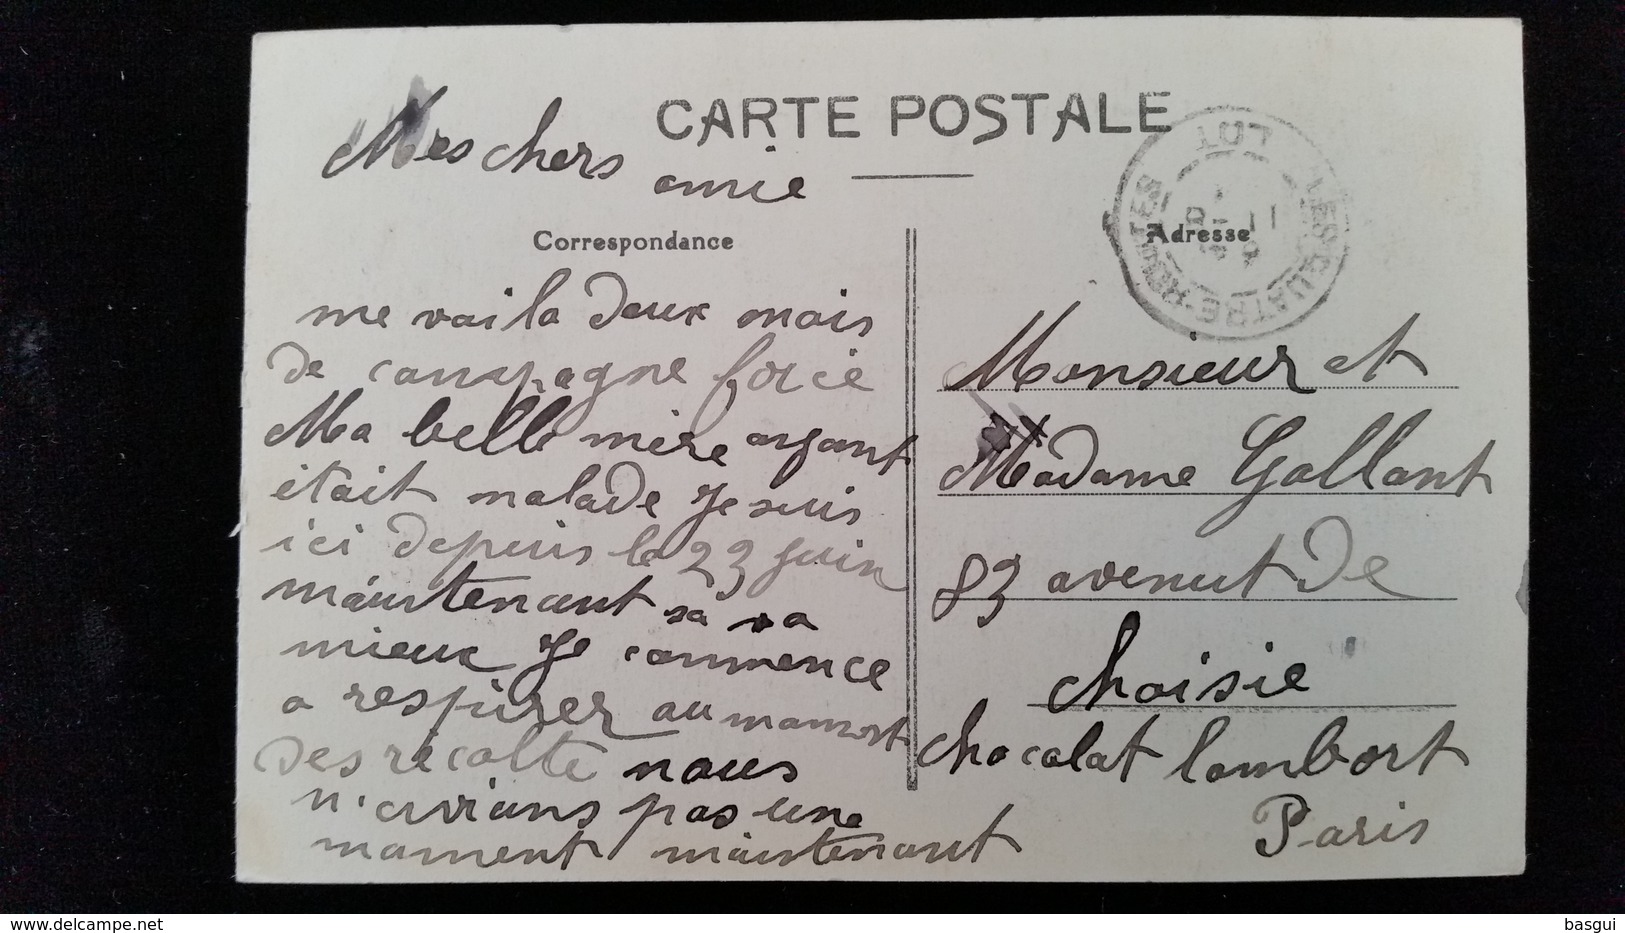 CARTE POSTALE
Mes chers
amie
Correspondance
me voila deux mois
de campagne forcé
Ma belle mère ayant
était malade je suis
ici depuis le 23 juin
maintenant sa va
mieux je commence
a respirer au mament
des récolte nous
n'avians pas une
mament maintenant
LES QUATRE-ROUTES
LOT
Adresse
Monsieur et
Madame Gallant
83 avenut de
choisie
chocalat lambort
Paris
delcampe.net
basgui